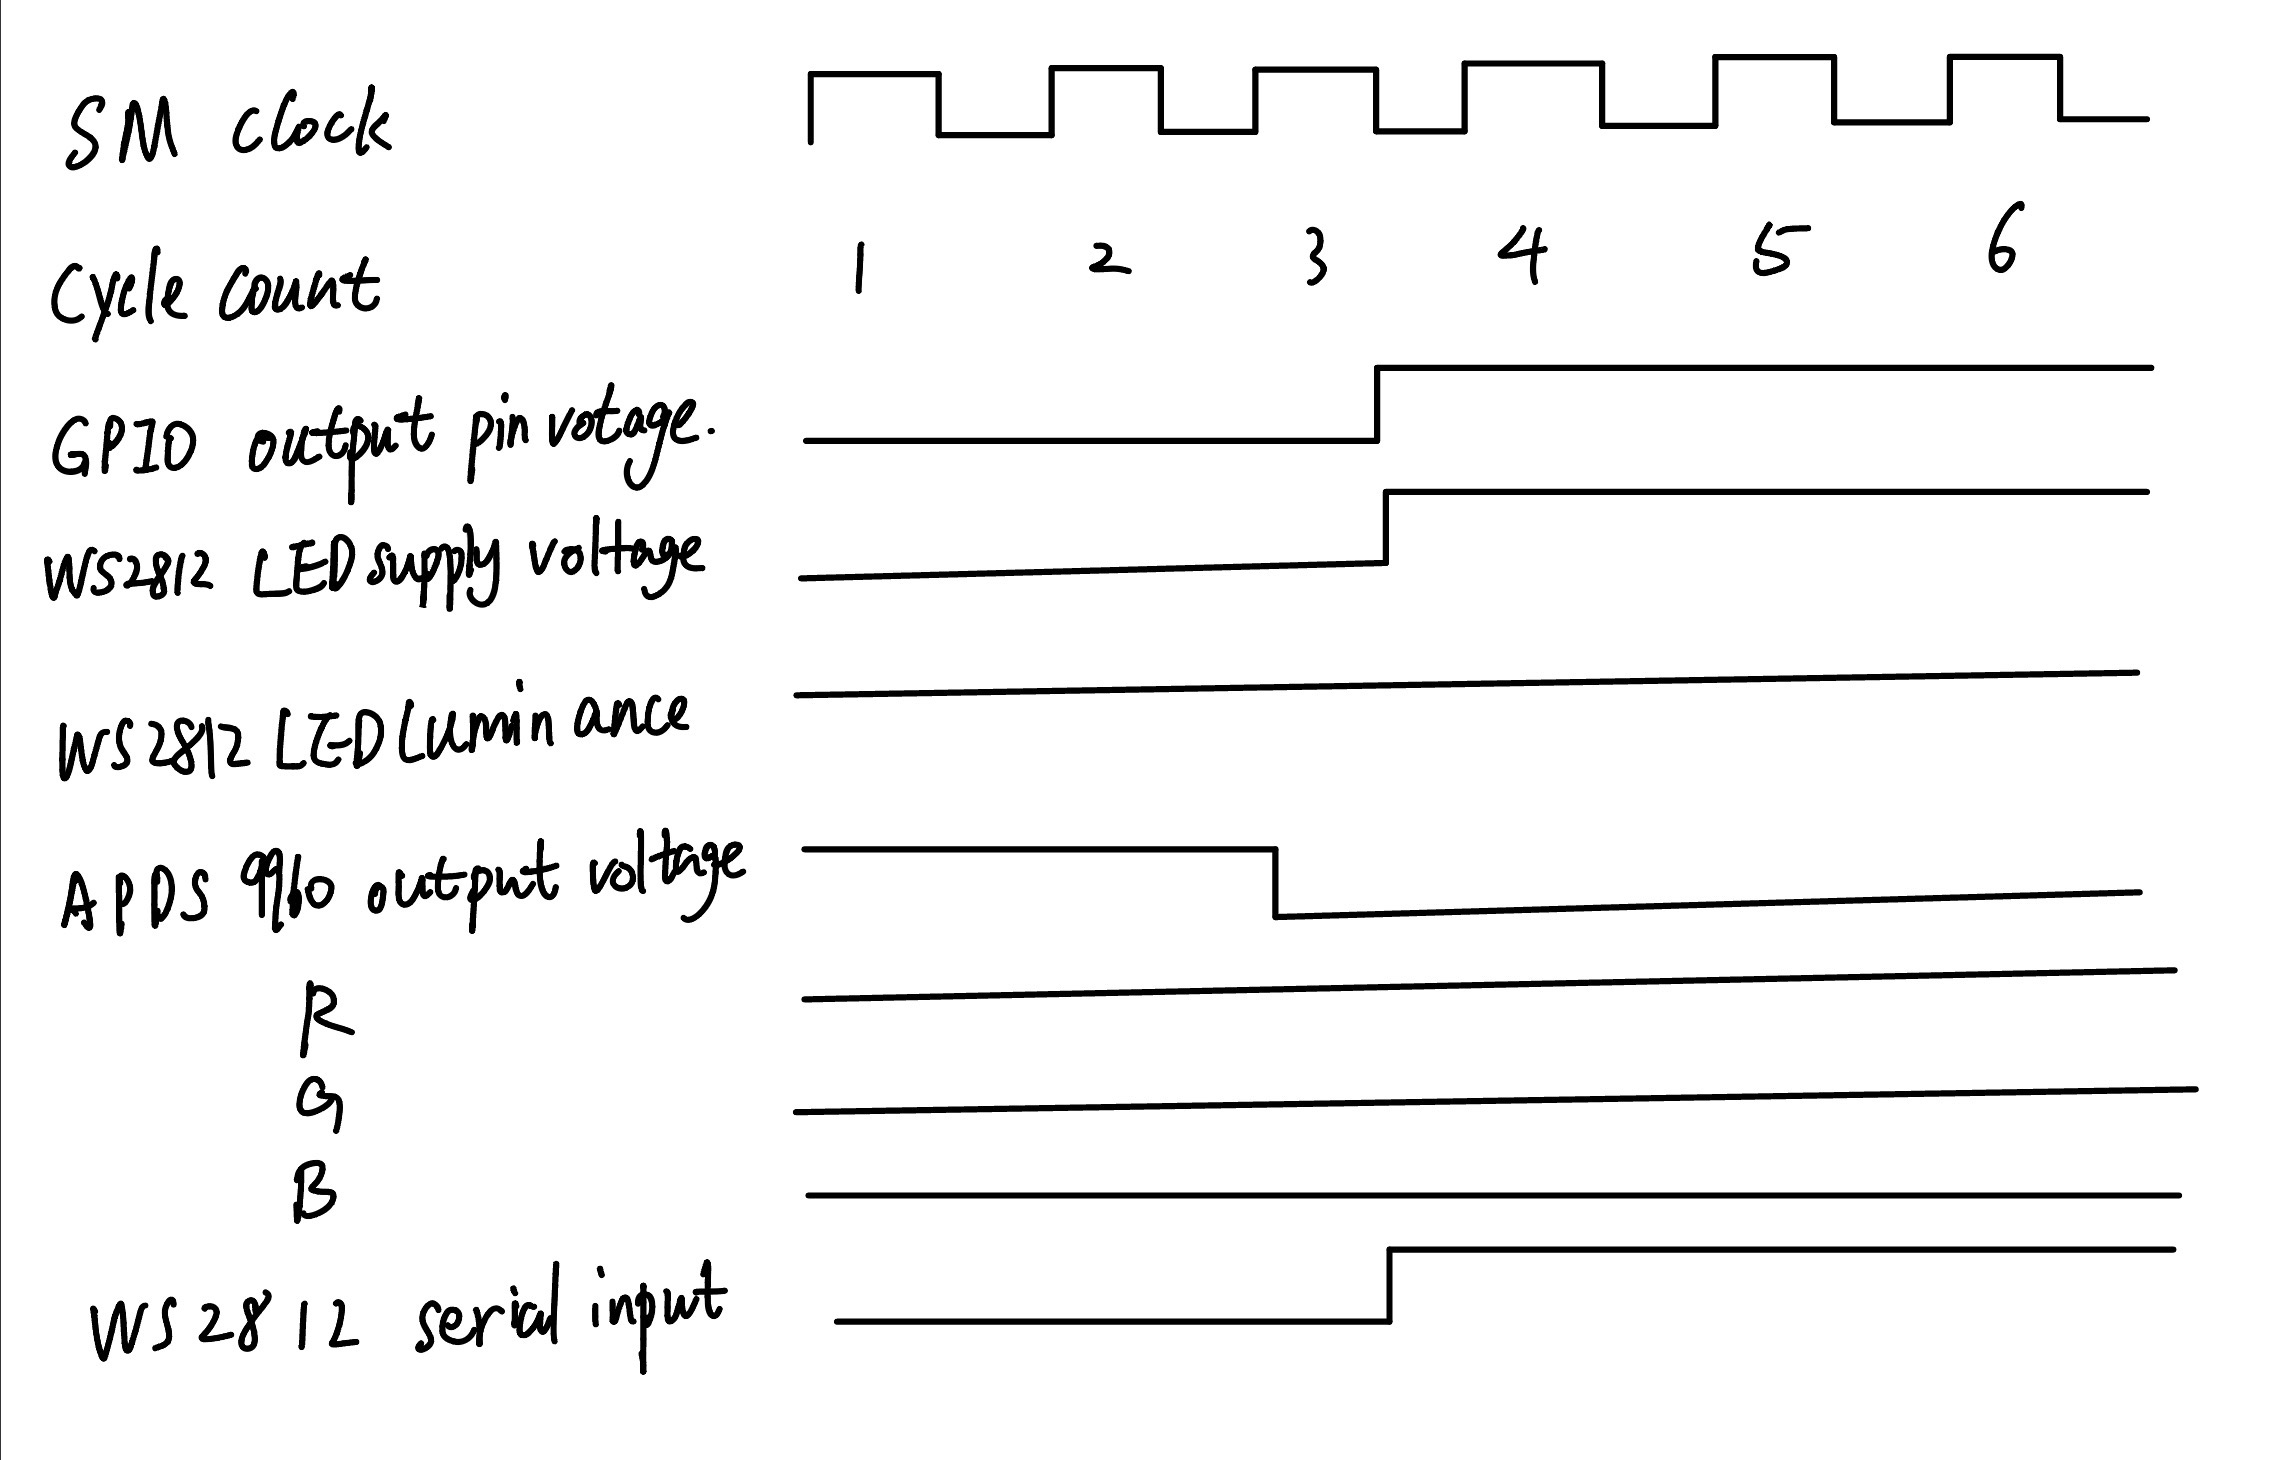 SM clock
Cycle count
1 2 3 4 5 6
GPIO output pin votage.
WS2812 LED supply voltage
WS2812 LED Luminance
APDS 9960 output voltage
R
G
B
WS2812 serial input